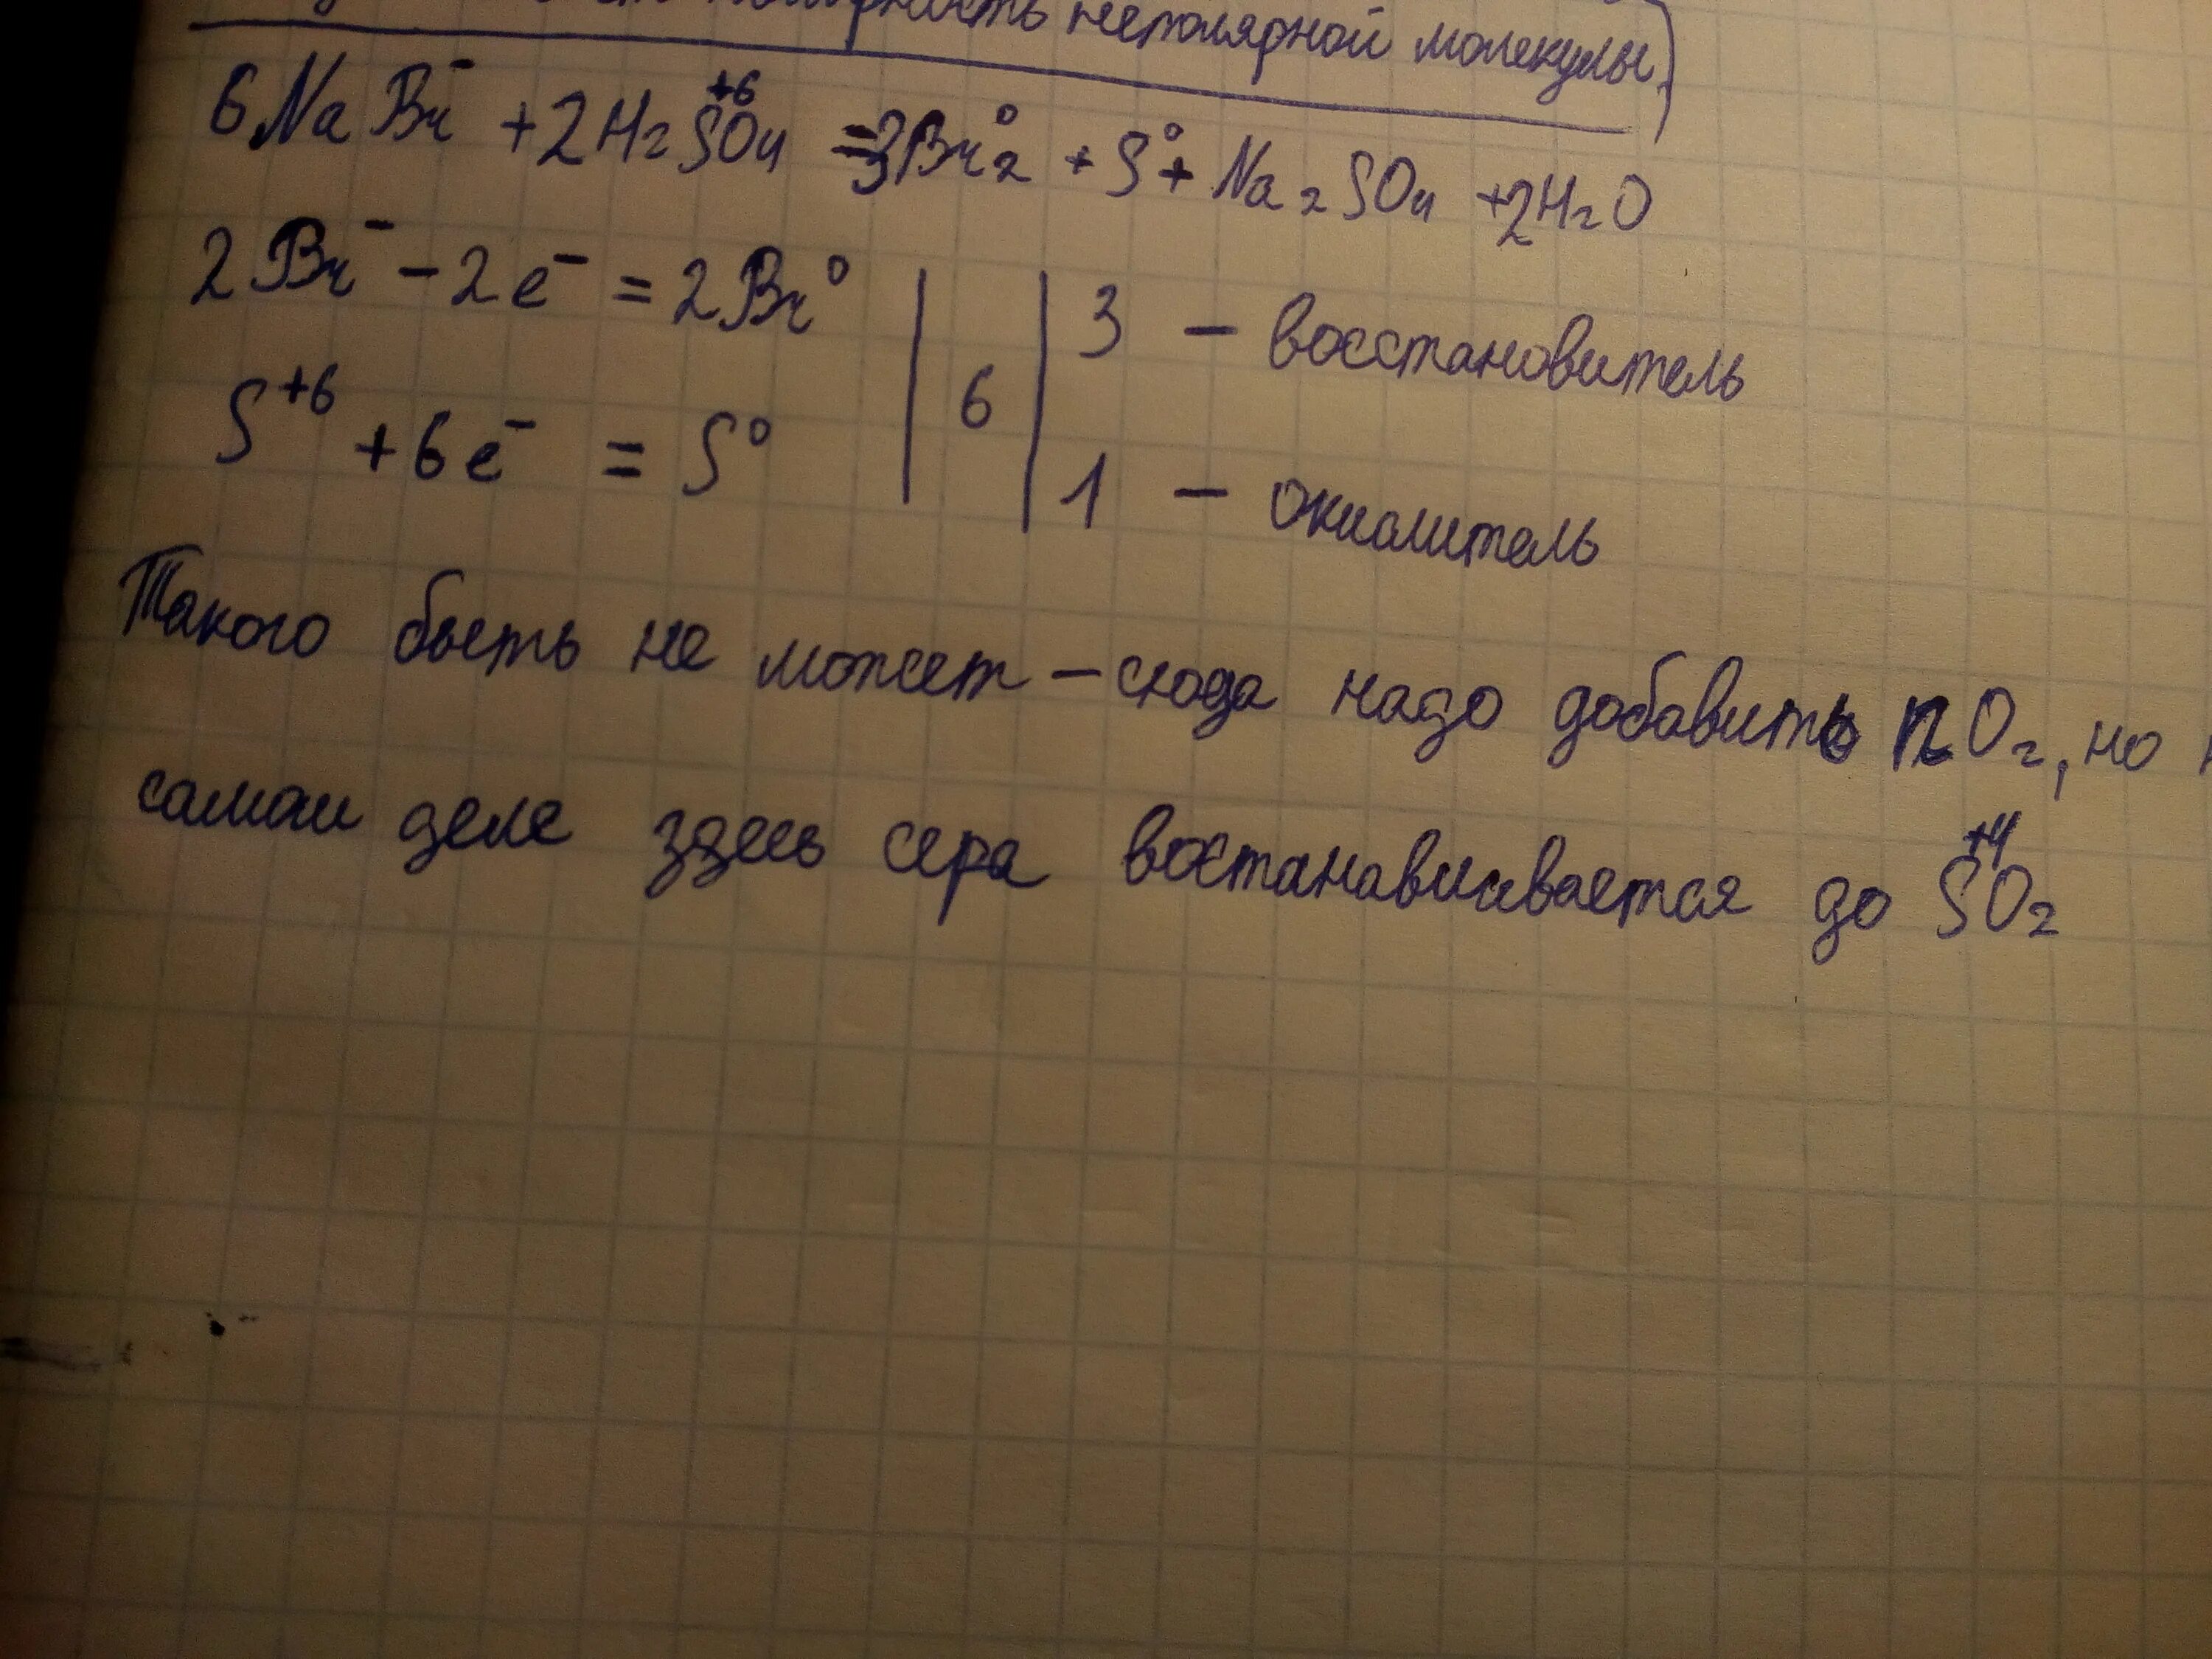 полярность неполярной молекулы)
6NaBr⁻ + 2H₂S⁺⁶O₄ = 3Br₂⁰ + S⁰ + Na₂SO₄ + 2H₂O
2Br⁻ - 2e⁻ = 2Br⁰ | | 3 - восстановитель
6
S⁺⁶ + 6e⁻ = S⁰ | | 1 - окислитель
Такого быть не может - сюда надо добавить nO₂, но
самом деле здесь сера востанавливается до S⁺⁴O₂